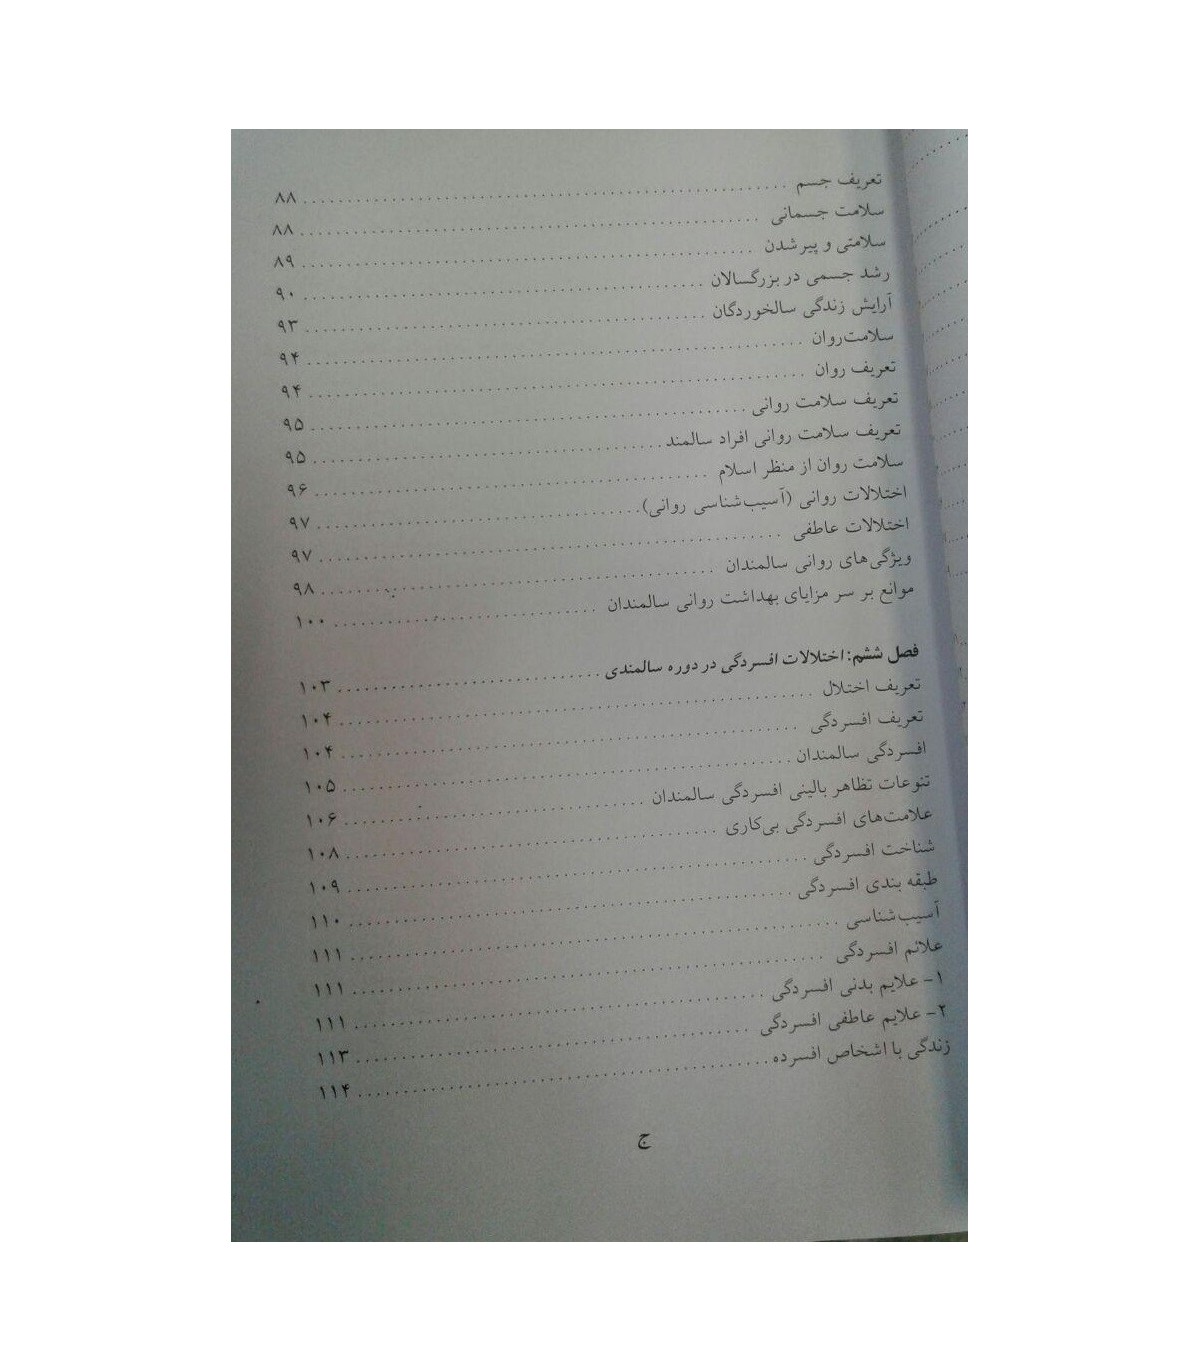 تعریف جسم ........ ۸۸
سلامت جسمانی ........ ۸۸
سلامتی و پیر شدن ........ ۸۹
رشد جسمی در بزرگسالان ........ ۹۰
آرایش زندگی سالخوردگان ........ ۹۳
سلامت‌روان ........ ۹۴
تعریف روان ........ ۹۴
تعریف سلامت روانی ........ ۹۵
تعریف سلامت روانی افراد سالمند ........ ۹۵
سلامت روان از منظر اسلام ........ ۹۶
اختلالات روانی (آسیب‌شناسی روانی) ........ ۹۷
اختلالات عاطفی ........ ۹۷
ویژگی‌های روانی سالمندان ........ ۹۸
موانع بر سر مزایای بهداشت روانی سالمندان ........ ۱۰۰
فصل ششم: اختلالات افسردگی در دوره سالمندی ........ ۱۰۳
تعریف اختلال ........ ۱۰۴
تعریف افسردگی ........ ۱۰۴
افسردگی سالمندان ........ ۱۰۵
تنوعات تظاهر بالینی افسردگی سالمندان ........ ۱۰۶
علامت‌های افسردگی بی‌کاری ........ ۱۰۸
شناخت افسردگی ........ ۱۰۹
طبقه بندی افسردگی ........ ۱۱۰
آسیب‌شناسی ........ ۱۱۱
علائم افسردگی ........ ۱۱۱
۱- علایم بدنی افسردگی ........ ۱۱۱
۲- علایم عاطفی افسردگی ........ ۱۱۳
زندگی با اشخاص افسرده ........ ۱۱۴
ج